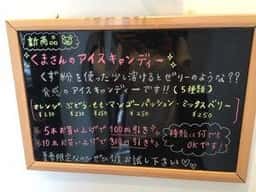 新商品
くまさんのアイスキャンディー
くず粉を使った少し溶けるとゼリーのような??
食感のアイスキャンディーです!!(5種類)
オレンジ ぶどう・もも マンゴーパッション・ミックスベリー
¥230 ¥230 ¥250 ¥250
※5本お買い上げで100円引き
※10本お買い上げで300円引き
種類は何でも
OKです!
夏季限定なのでぜひ1度お試し下さい♡